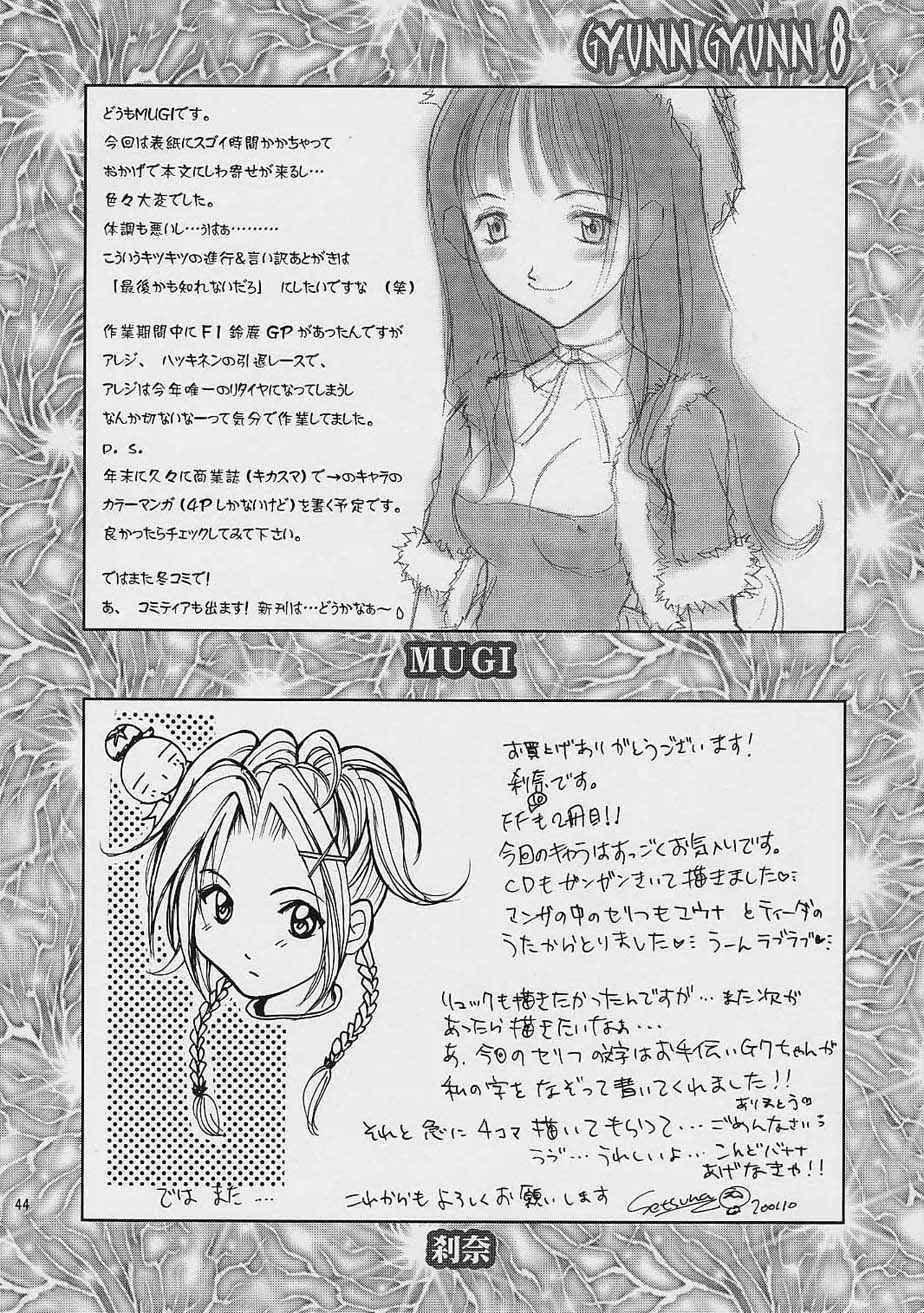 GYUNN GYUNN 8
どうもMUGIです。
今回は表紙にスゴイ時間かかちゃって
おかげで本文にしわ寄せが来るし…
色々大変でした。
体調も悪いし…うはぁ………
こういうキツキツの進行&言い訳あとがきは
「最後かも知れないだろ」 にしたいですな (笑)
作業期間中にF1鈴鹿GPがあったんですが
アレジ、ハッキネンの引退レースで、
アレジは今年唯一のリタイヤになってしまうし
なんか切ないなーって気分で作業してました。
P.S.
年末に久々に商業誌(キカスマ)で→のキャラの
カラーマンガ(4Pしかないけど)を書く予定です。
良かったらチェックしてみて下さい。
ではまた冬コミで!
あ、コミティアも出ます! 新刊は…どうかなぁ〜
MUGI
お買上げありがとうございます!
刹奈です。
10
FFも2冊目!!
今回のキャラはすっごくお気入りです。
CDもガンガンきいて描きました♡…
マンガの中のセリフもユウナとティーダの
うたからとりました♡… うーんラブラブ♡
リュックも描きたかったんですが…また次が
あったら描きたいなぁ…
あ、今回のセリフの文字はお手伝いGクちゃんが
私の字をなぞって書いてくれました!!
ありがとう
それと急に4コマ描いてもらって…ごめんなさい
ラヴ…うれしいよ…こんどバナナ
あげなきゃ!!
では また …
これからもよろしくお願いします
Setsuna 2001.10
44
刹奈